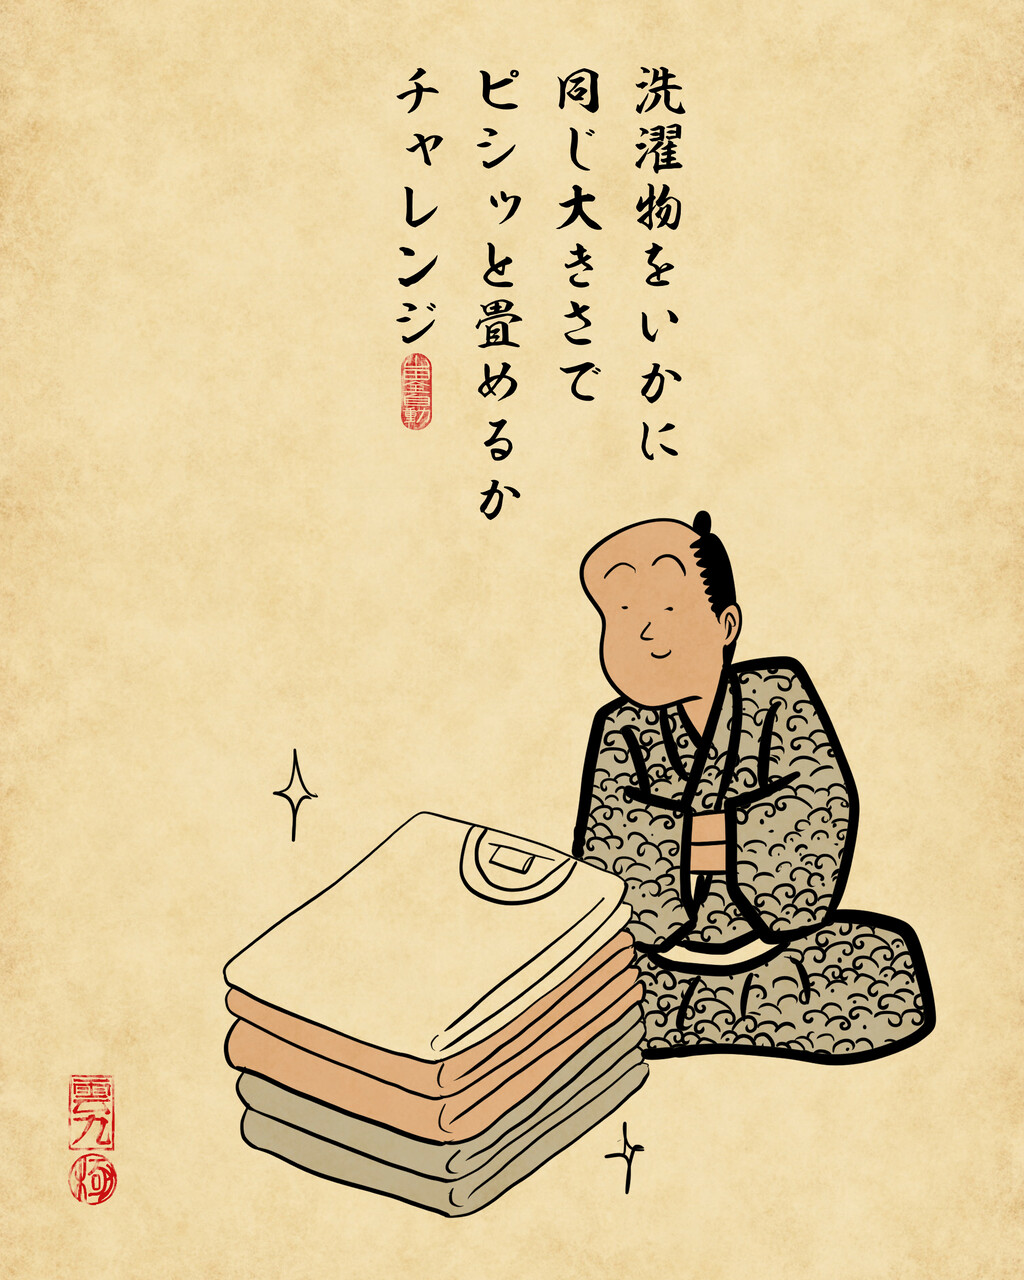 洗濯物をいかに
同じ大きさで
ピシッと畳めるか
チャレンジ